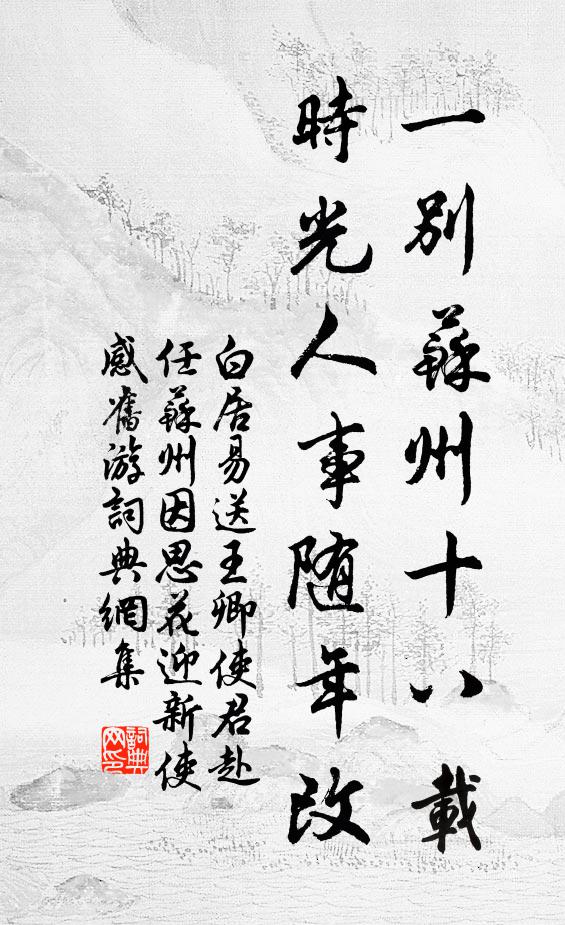 一别蘇州十八載
時光人事随年改
白居易送王卿使君赴
任蘇州因思花迎新使
感舊游詞典網集
詞典
网印